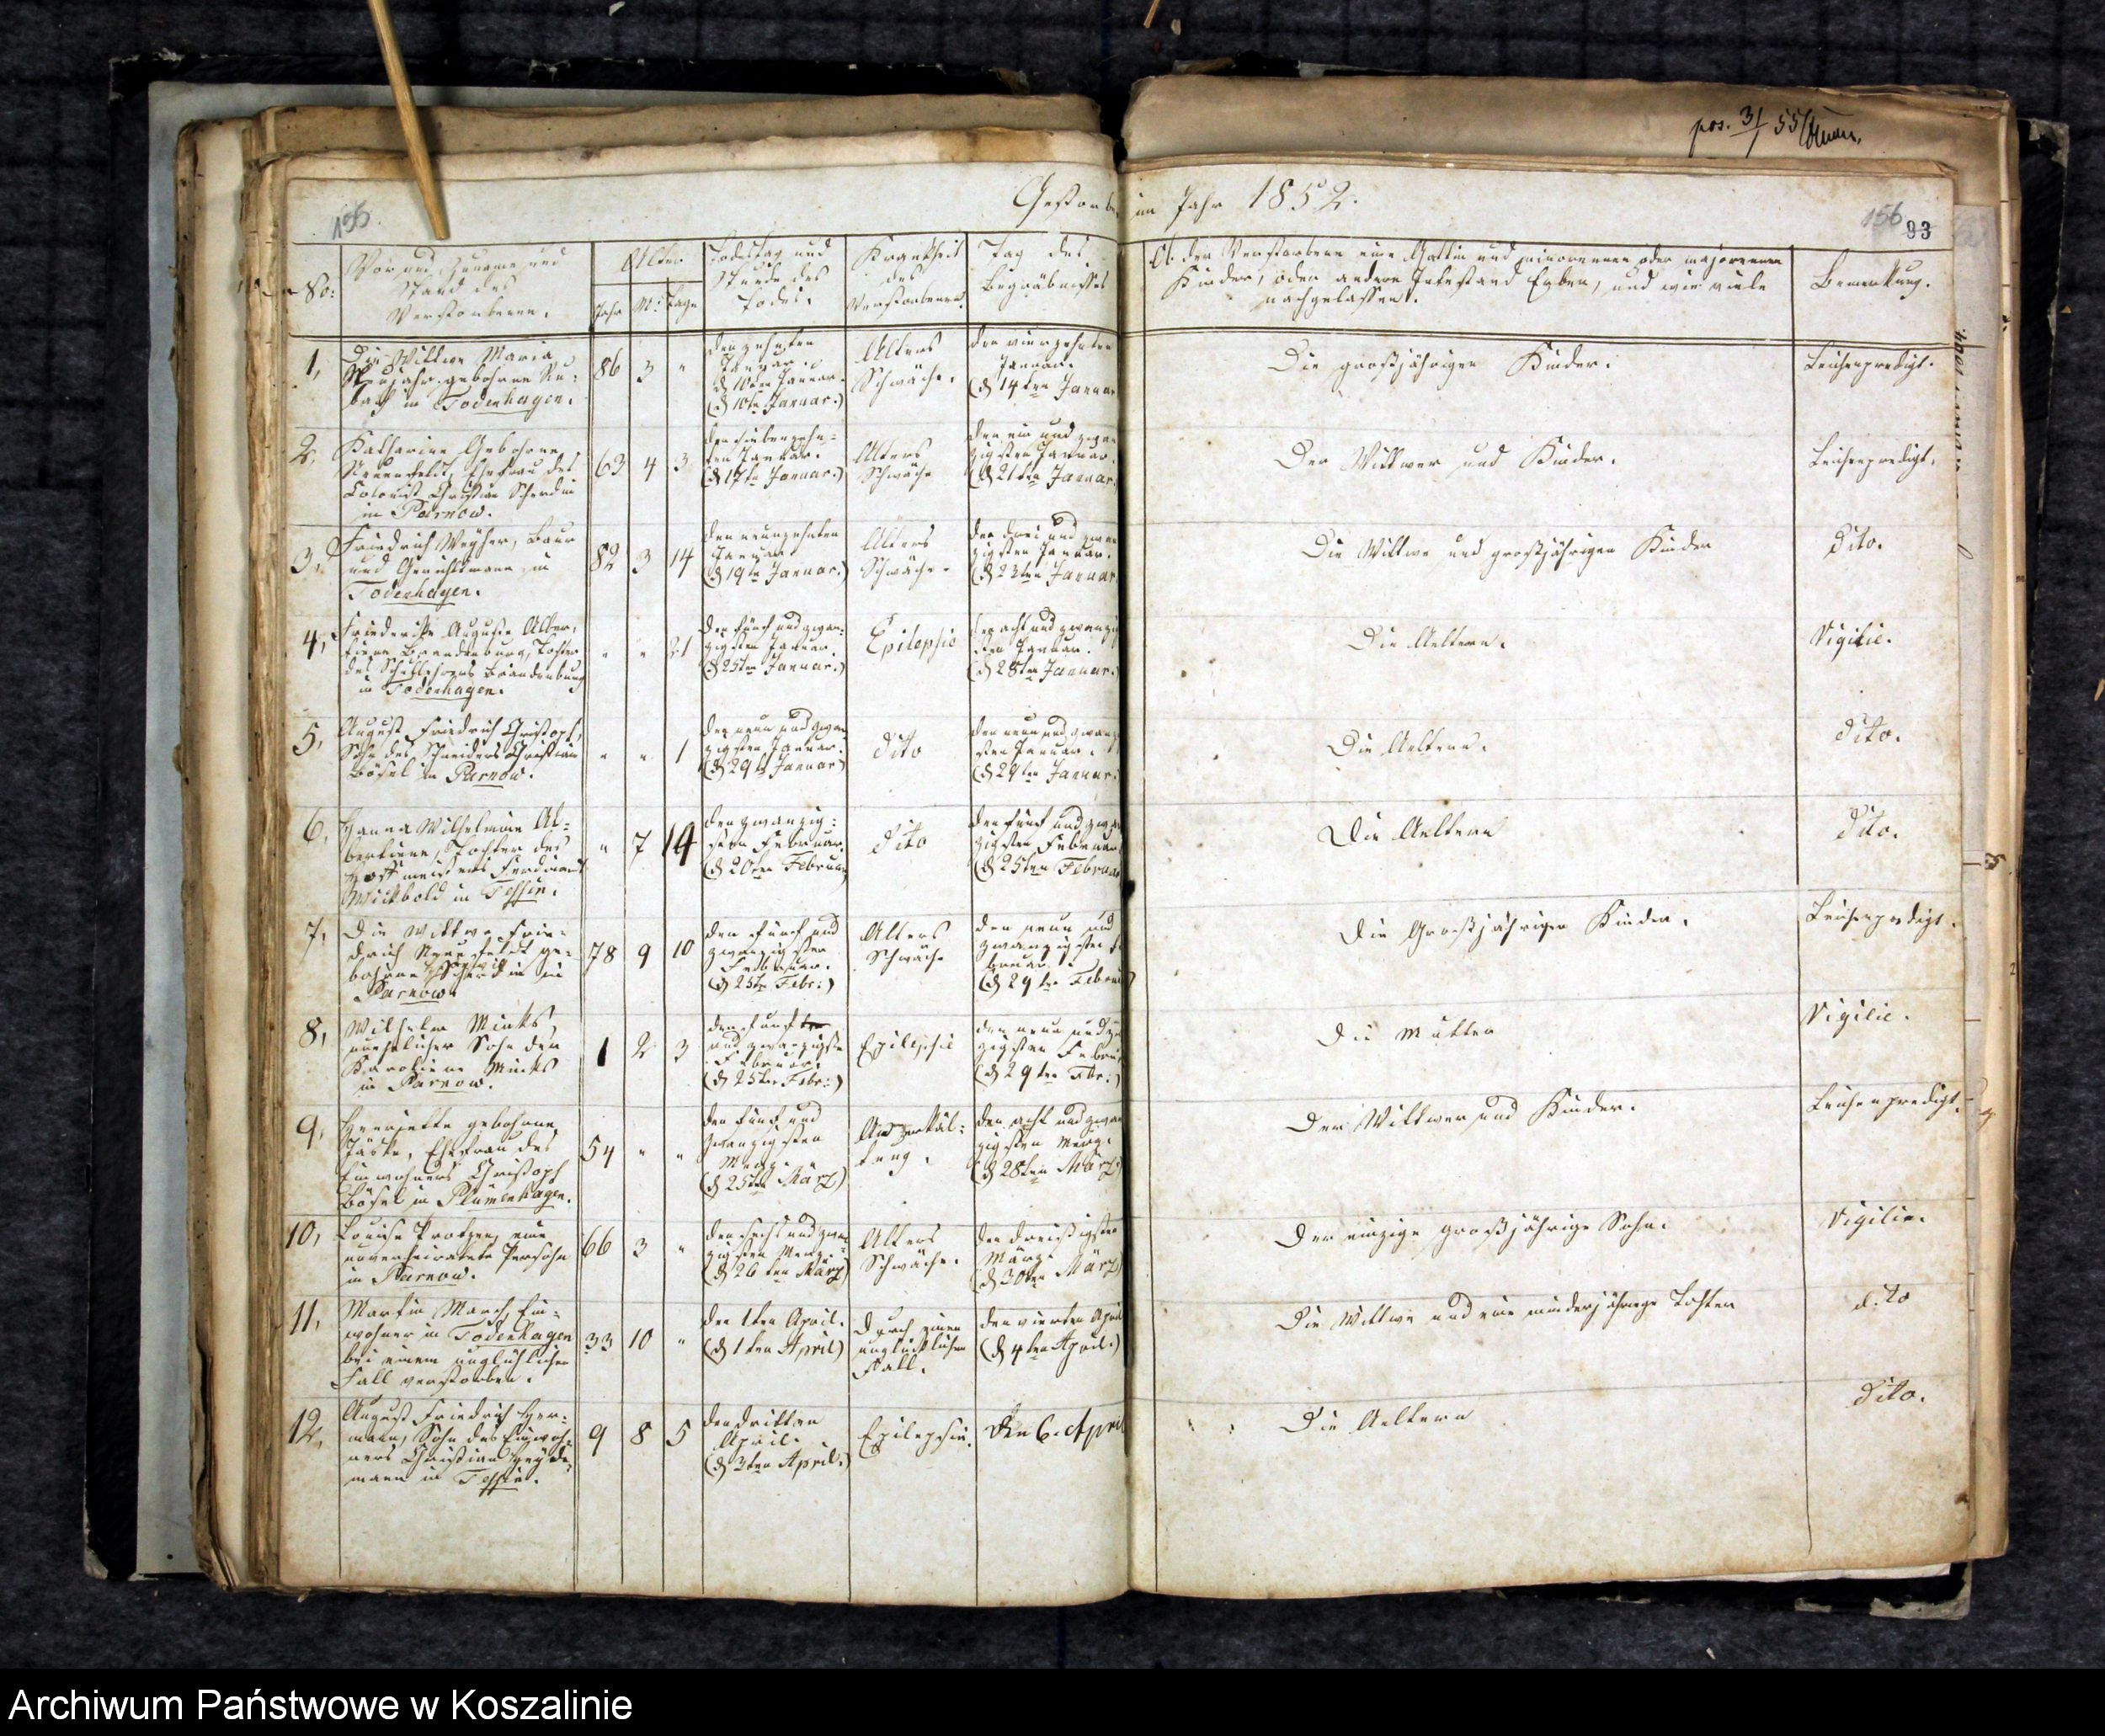 pos. 31/55
Gestorben im Jahr 1852.
156
156
93
No:
Vor und Zuname und
Stand des
Verstorbenen.
Alter.
Jahr M: Tage
Todestag und
Stunde des
Todes.
Krankheit
des
Verstorbenen.
Tag des
Begräbnisses
Ob der Verstorbene eine Gattin und minorenne oder majorenne
Kinder, oder andere Erben, und wie viele
nachgelassen.
Bemerkung.
1, Die Wittwe Maria
gebohrne
in Todenhagen.
86 3 "
den zehnten
Januar.
(d 10ten Januar.)
Alters
Schwäche.
den vierzehnten
Januar.
(d 14ten Januar
Die großjährigen Kinder.
Leichenpredigt.
2. Katharine Gebohrne
Neuenfeldt, Ehefrau des
Colonist Christian
in Parnow.
63 4 3
den siebenzehn-
ten Januar.
(d 17ten Januar.)
Alters
Schwäche
den ein und zwan
zigsten Januar.
(d 21ten Januar.)
Der Wittwer und Kinder.
Leichenpredigt.
3, Friedrich Weyher, Baur
und Gerichtsmann in
Todenhagen.
82 3 14
den neunzehnten
Januar
(d 19te Januar.)
Alters
Schwäche.
den drei und zwan
zigsten Januar.
(d 23ten Januar
Die Wittwe und großjährigen Kinder
Dito.
4, Friederike Auguste Alber,
tiene Brandenburg, Tochter
des Brandenburg
in Todenhagen.
" " 21
den fünf und zwan-
zigsten Januar
(d 25ten Januar.)
Epilepsie
den acht und zwanzig
sten Januar.
(d 28ten Januar.)
Die Aeltern.
Vigilie.
5, August Friedrich Christoph,
Sohn des Schneiders Christian
Bösel in Parnow.
" " 1
den neun und zwan
zigsten Januar.
(d 29te Januar)
dito
den neun und zwanzig
sten Januar.
(d 29ten Januar.)
Die Aeltern.
dito.
6, Hanna Wilhelmine Al-
bertiene, Tochter des
Ferdinand
Wickbold in Tessin.
" 7 14
den zwanzig-
sten Februar.
(d 20ten Februar
dito
den fünf und zwan
zigsten Februar
(d 25ten Februar
Die Aeltern
Dito.
7, Die Wittwe Frie-
drich Neuenfeldt ge-
bohrne in
Parnow.
78 9 10
den fünf und
zwanzigsten
Februar.
(d 25te Febr:)
Alters
Schwäche
den neun und
zwanzigsten Fe
bruar.
(d 29te Februar)
Die Großjährigen Kinder.
Leichenpredigt.
8, Wilhelm Minks,
unehelicher Sohn der
Karoliene Minks
in Parnow.
1 2 3
den fünf
und zwanzigste
Februar.
(d 25ten Febr:)
Epilepsie
den neun und zwan
zigsten Februar
(d 29ten Febr:)
Die Mutter
Vigilie.
9, Henriette gebohrne
Ehefrau des
Einwohners Christoph
Bösel in Plümenhagen.
54 " "
den fünf und
zwanzigsten
Merz.
(d 25ten März)
den acht und zwan
zigsten Merz.
(d 28ten März)
Der Wittwer und Kinder.
Leichenpredigt.
10, Louise eine
unverheiratete Persohn
in Parnow.
66 3 "
den sechs und zwan-
zigsten Merz.
(d 26ten März)
Alters
Schwäche.
den dreißigsten
März.
(d 30ten März)
Der einzige großjährige Sohn.
Vigilie.
11, Martin March, Ein-
wohner in Todenhagen
bei einem unglücklichen
Fall verstorben.
33 10 "
den 1ten April.
(d 1ten April)
Durch einen
unglücklichen
Fall.
den vierten April
(d 4ten April.)
Die Wittwe und eine minderjährige Tochter
dito
12, August Friedrich Her-
mann, Sohn des Einwoh-
ners Christian Heyde-
mann in Tessin.
9 8 5
den dritten
April.
(d 3ten April.)
Epilepsie.
Den 6. April
Die Aeltern
Dito.
Archiwum Państwowe w Koszalinie